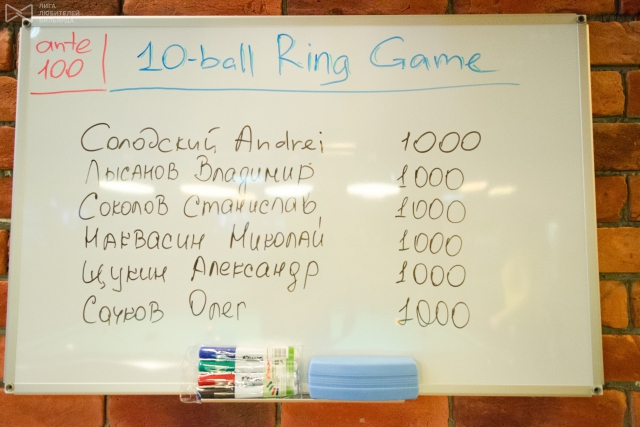 ЛИГА
ЛЮБИТЕЛЕЙ
ante
100
10-ball Ring Game
Солодский Andrei 1000
Лысанов Владимир 1000
Соколов Станислав 1000
Наквасин Николай 1000
Щукин Александр 1000
Сачков Олег 1000